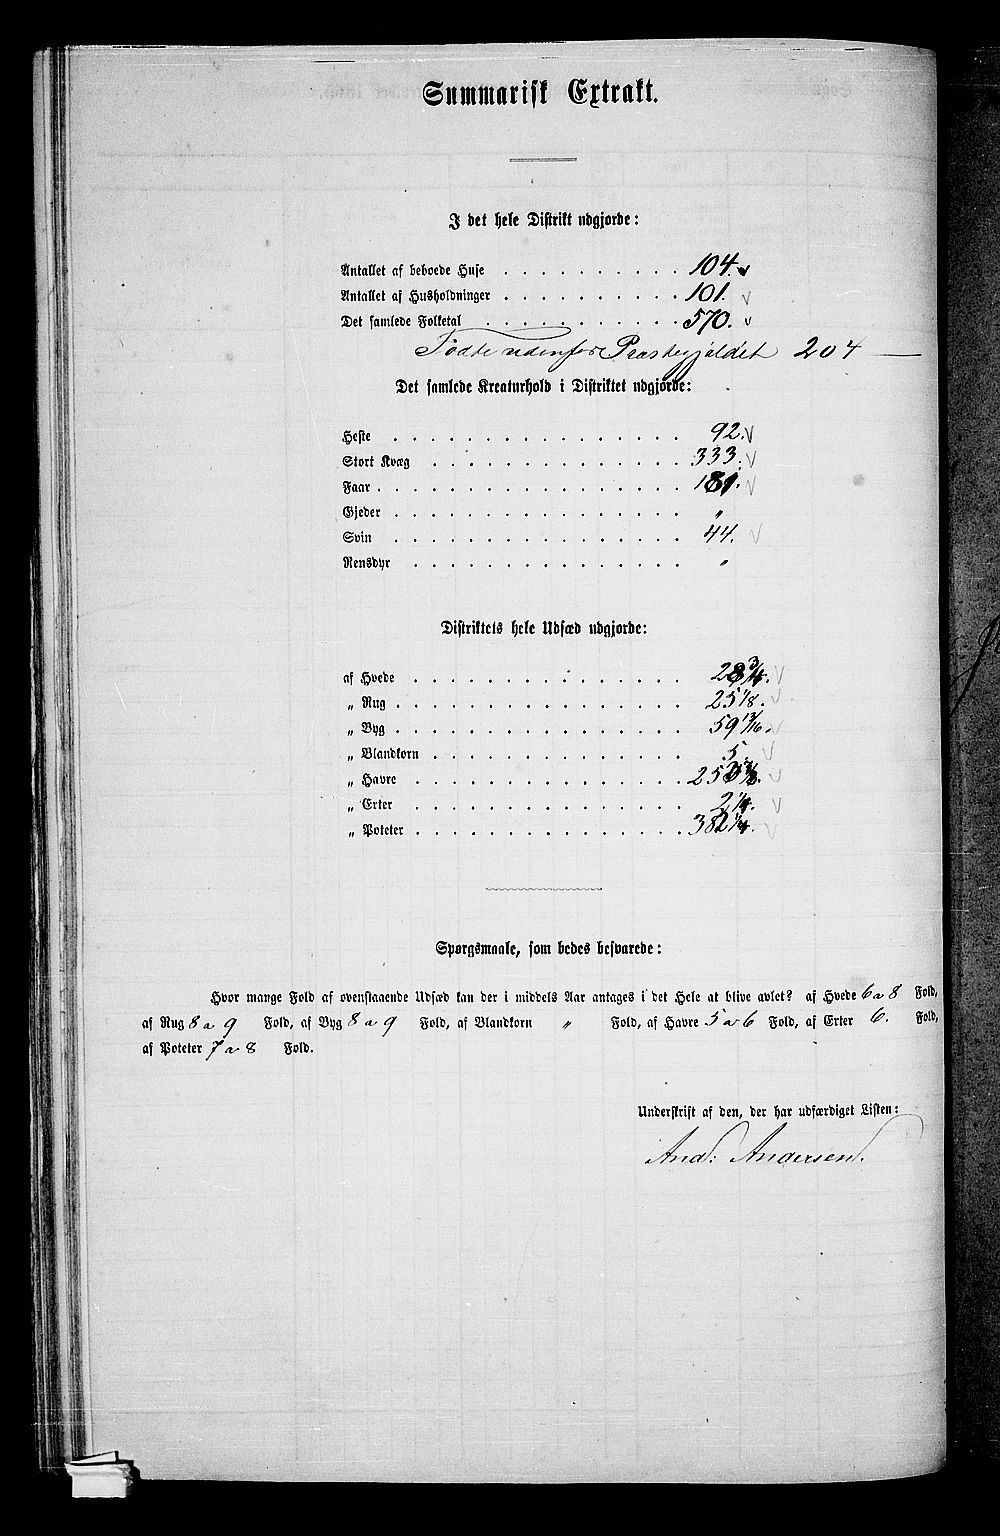 Summarisk Extrakt.
I det hele Distrikt udgjorde:
Antallet af beboede Huse . . . . . . . . . . 104.
Antallet af Husholdninger . . . . . . . . . . 101.
Det samlede Folketal . . . . . . . . . . 570.
Fødte udenfor Præstegjeldet 204
Det samlede Kreaturhold i Distriktet udgjorde:
Heste . . . . . . . . . . 92.
Stort Kvæg . . . . . . . . . . 333.
Faar . . . . . . . . . . 181.
Gjeder . . . . . . . . . . "
Svin . . . . . . . . . . 44.
Rensdyr . . . . . . . . . . "
Distriktets hele Udsæd udgjorde:
af Hvede . . . . . . . . . . 28 3/4.
„ Rug . . . . . . . . . . 25 1/8.
„ Byg . . . . . . . . . . 59 13/16.
„ Blandkorn . . . . . . . . . . 5.
„ Havre . . . . . . . . . .
„ Erter . . . . . . . . . . 2 1/4.
„ Poteter . . . . . . . . . . 382 1/4.
Spørgsmaale, som bedes besvarede:
Hvor mange Fold af ovenstaaende Udsæd kan der i middels Aar antages i det Hele at blive avlet? af Hvede 6 a 8 Fold,
af Rug 8 a 9 Fold, af Byg 8 a 9 Fold, af Blandkorn " Fold, af Havre 5 a 6 Fold, af Erter 6. Fold,
af Poteter 7 a 8 Fold.
Underskrift af den, der har udfærdiget Listen:
And: Andersen.